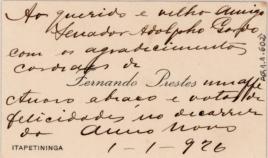 Ao querido e velho Amigo
Senador Adolpho Gordo
com os agradecimentos
cordiaes de
Fernando Prestes um affe
abraço e votos de
felicidades no decorrer
do Anno Novo
ITAPETININGA 1-1-926